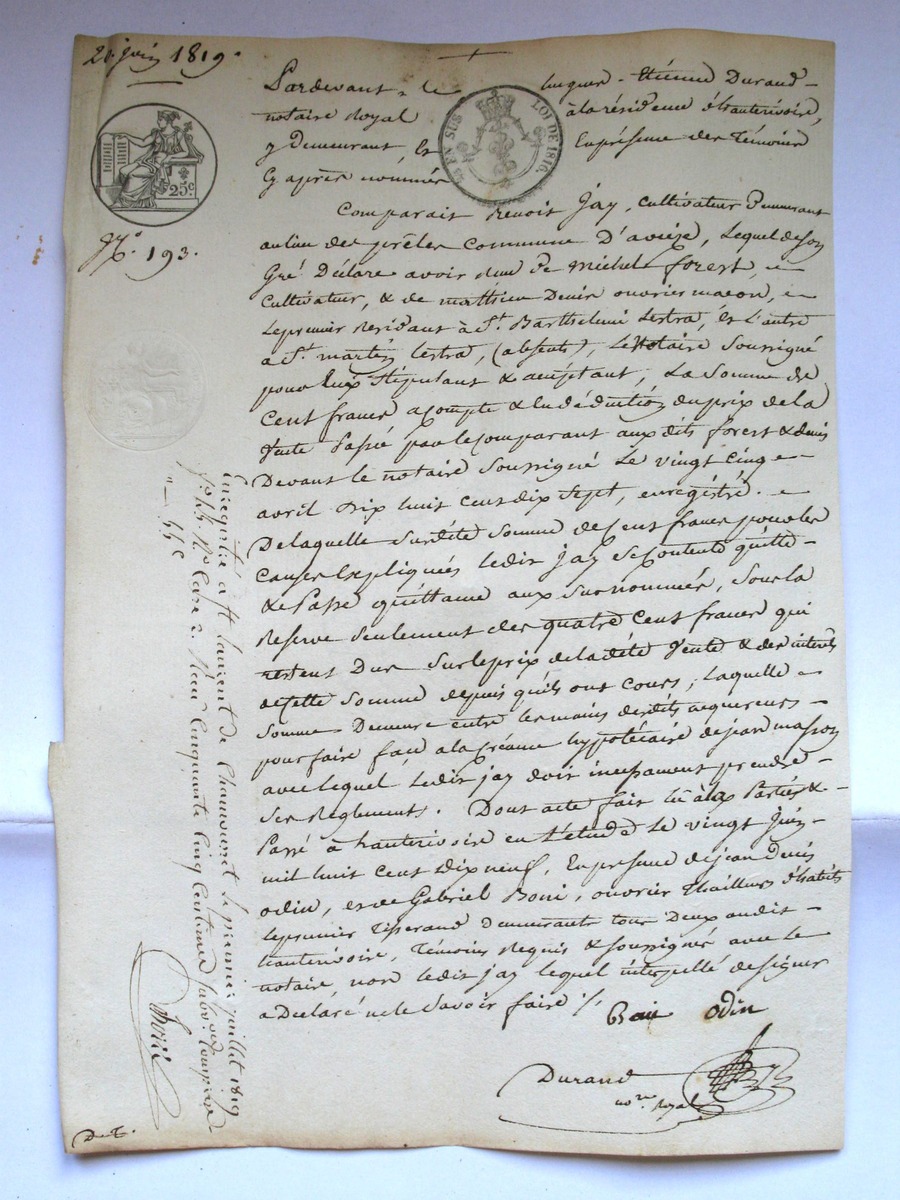 20 juin 1819.
Pardevant le Jacques-Etienne Durand
notaire Royal à la résidence d'hauterivoire,
y Demeurant, Et En présence des Témoins
Cy après nommés
EN SUS
LOI DE 1816.
25c.
N.o 193.
Comparait Benoit Jay, cultivateur Demeurant
au lieu des prêles commune D'aveize, Lequel de son
Gré Déclare avoir Reçu De Michel forest,
cultivateur, & de mathieu Denis ouvrier macon,
Le premier Residant à St. Barthelemi Lestra, Et L'autre
a St. martin Lestra, (absents), le Notaire Soussigné
pour Eux Stipulant & acceptant, La Somme de
Cent francs acompte & En déduction du prix de la
Vente Passé par le Comparant aux dits forest & denis
Devant le notaire Soussigné Le vingt cinq
avril Dix huit cent dix Sept, enregistré.
De laquelle Susdite Somme de Cent francs pour les
Causes Expliquées ledit Jay Se Contente quitte
& Passe quittance aux Susnommés, Sous la
Reserve Seulement des quatre Cent francs qui
restent Dus Sur le prix de la dite Vente & des intérêts
de Cette Somme depuis qu'ils ont Cours; Laquelle
Somme Demeure entre les mains desdits acquereurs
pour faire face a la Créance hypotécaire de jean masson
avec lequel Ledit jay doit incessament prendre
Ses Reglements. Dont acte fait lû à la Partie &
Passé à hauterivoire en L'étude Le vingt Juin
mil huit Cent Dix neuf, En presence de jean Denis
odin, et de Gabriel Boni, ouvrier Thailleur d'habits
le premier Tisserand demeurants tous Deux audit
hauterivoire, Témoins Requis & soussignés avec le
notaire, non ledit jay lequel interpellé de signer
a Declaré ne le Savoir faire ./.
Boni odin
Durand
no.re royal
Enregistré à St laurent de Chamousset le premier juillet 1819
f.o 44 R.o Case 2. Reçu Cinquante Cinq centimes subv.on comprise
55c
D.T.